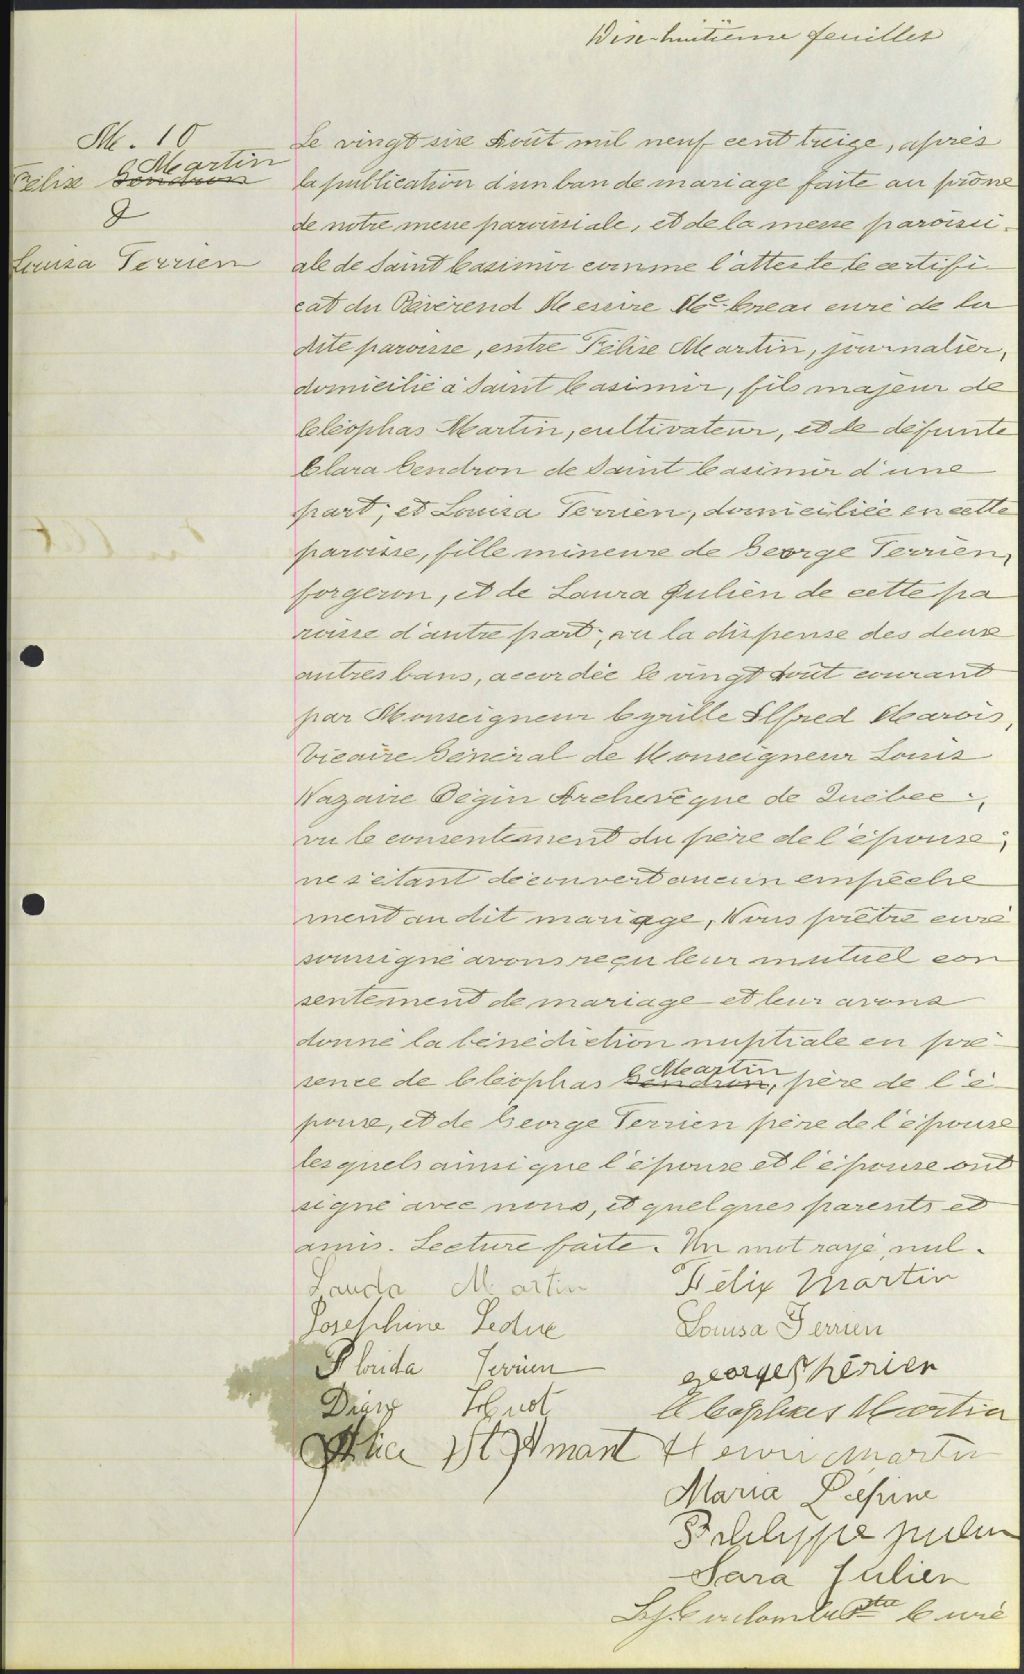 Dix-huitième feuillet
M. 10
Martin
Félix Gendron
&
Louisa Terrien
Le vingt six Août mil neuf cent treize, après
la publication d'un ban de mariage faite au prône
de notre messe paroissiale, et de la messe paroissi-
ale de Saint Casimir comme l'atteste le certifi-
cat du Révérend Messire curé de la
dite paroisse, entre Félix Martin, journalier,
domicilié à Saint Casimir, fils majeur de
Cléophas Martin, cultivateur, et de défunte
Clara Gendron de Saint Casimir d'une
part; et Louisa Terrien, domiciliée en cette
paroisse, fille mineure de George Terrien,
forgeron, et de Laura Julien de cette pa
roisse d'autre part; vu la dispense des deux
autres bans, accordée le vingt Août courant
par Monseigneur Cyrille Alfred Marois,
Vicaire Général de Monseigneur Louis
Nazaire Bégin Archevêque de Québec;
vu le consentement du père de l'épouse;
ne s'étant découvert aucun empêche
ment au dit mariage, Nous prêtre curé
soussigné avons reçu leur mutuel con
sentement de mariage et leur avons
donné la bénédiction nuptiale en pré-
Martin
sence de Cléophas Gendron, père de l'é-
poux, et de George Terrien père de l'épouse
lesquels ainsi que l'époux et l'épouse ont
signé avec nous, et quelques parents et
amis. Lecture faite. Un mot rayé nul.
Lauda Martin Félix Martin
Josephine Leduc Louisa Terrien
Florida Terrien george thérien
Diane Huot Cleophas Martin
Alice St Amant Henri Martin
Maria Lépine
Philippe Julien
Sara Julien
Ptre Curé